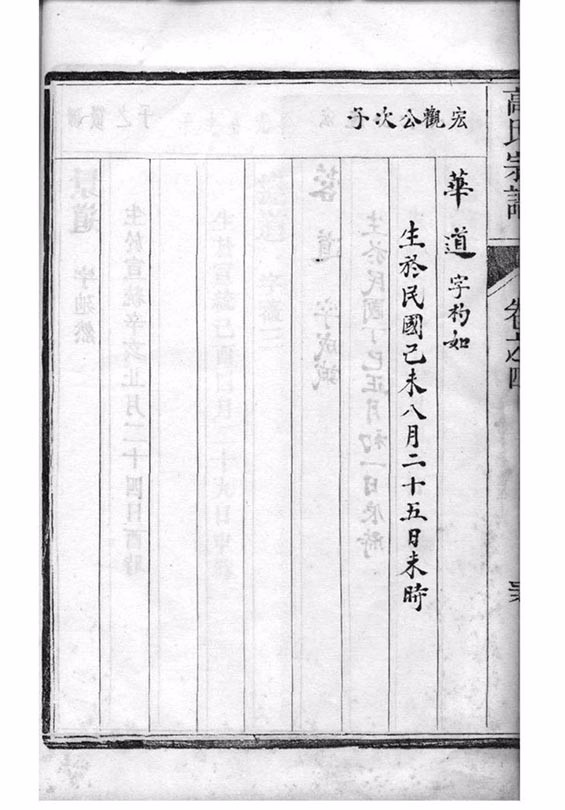 高氏宗譜
卷之四
宏觀公次子
華道 字杓如
生於民國己未八月二十五日未時